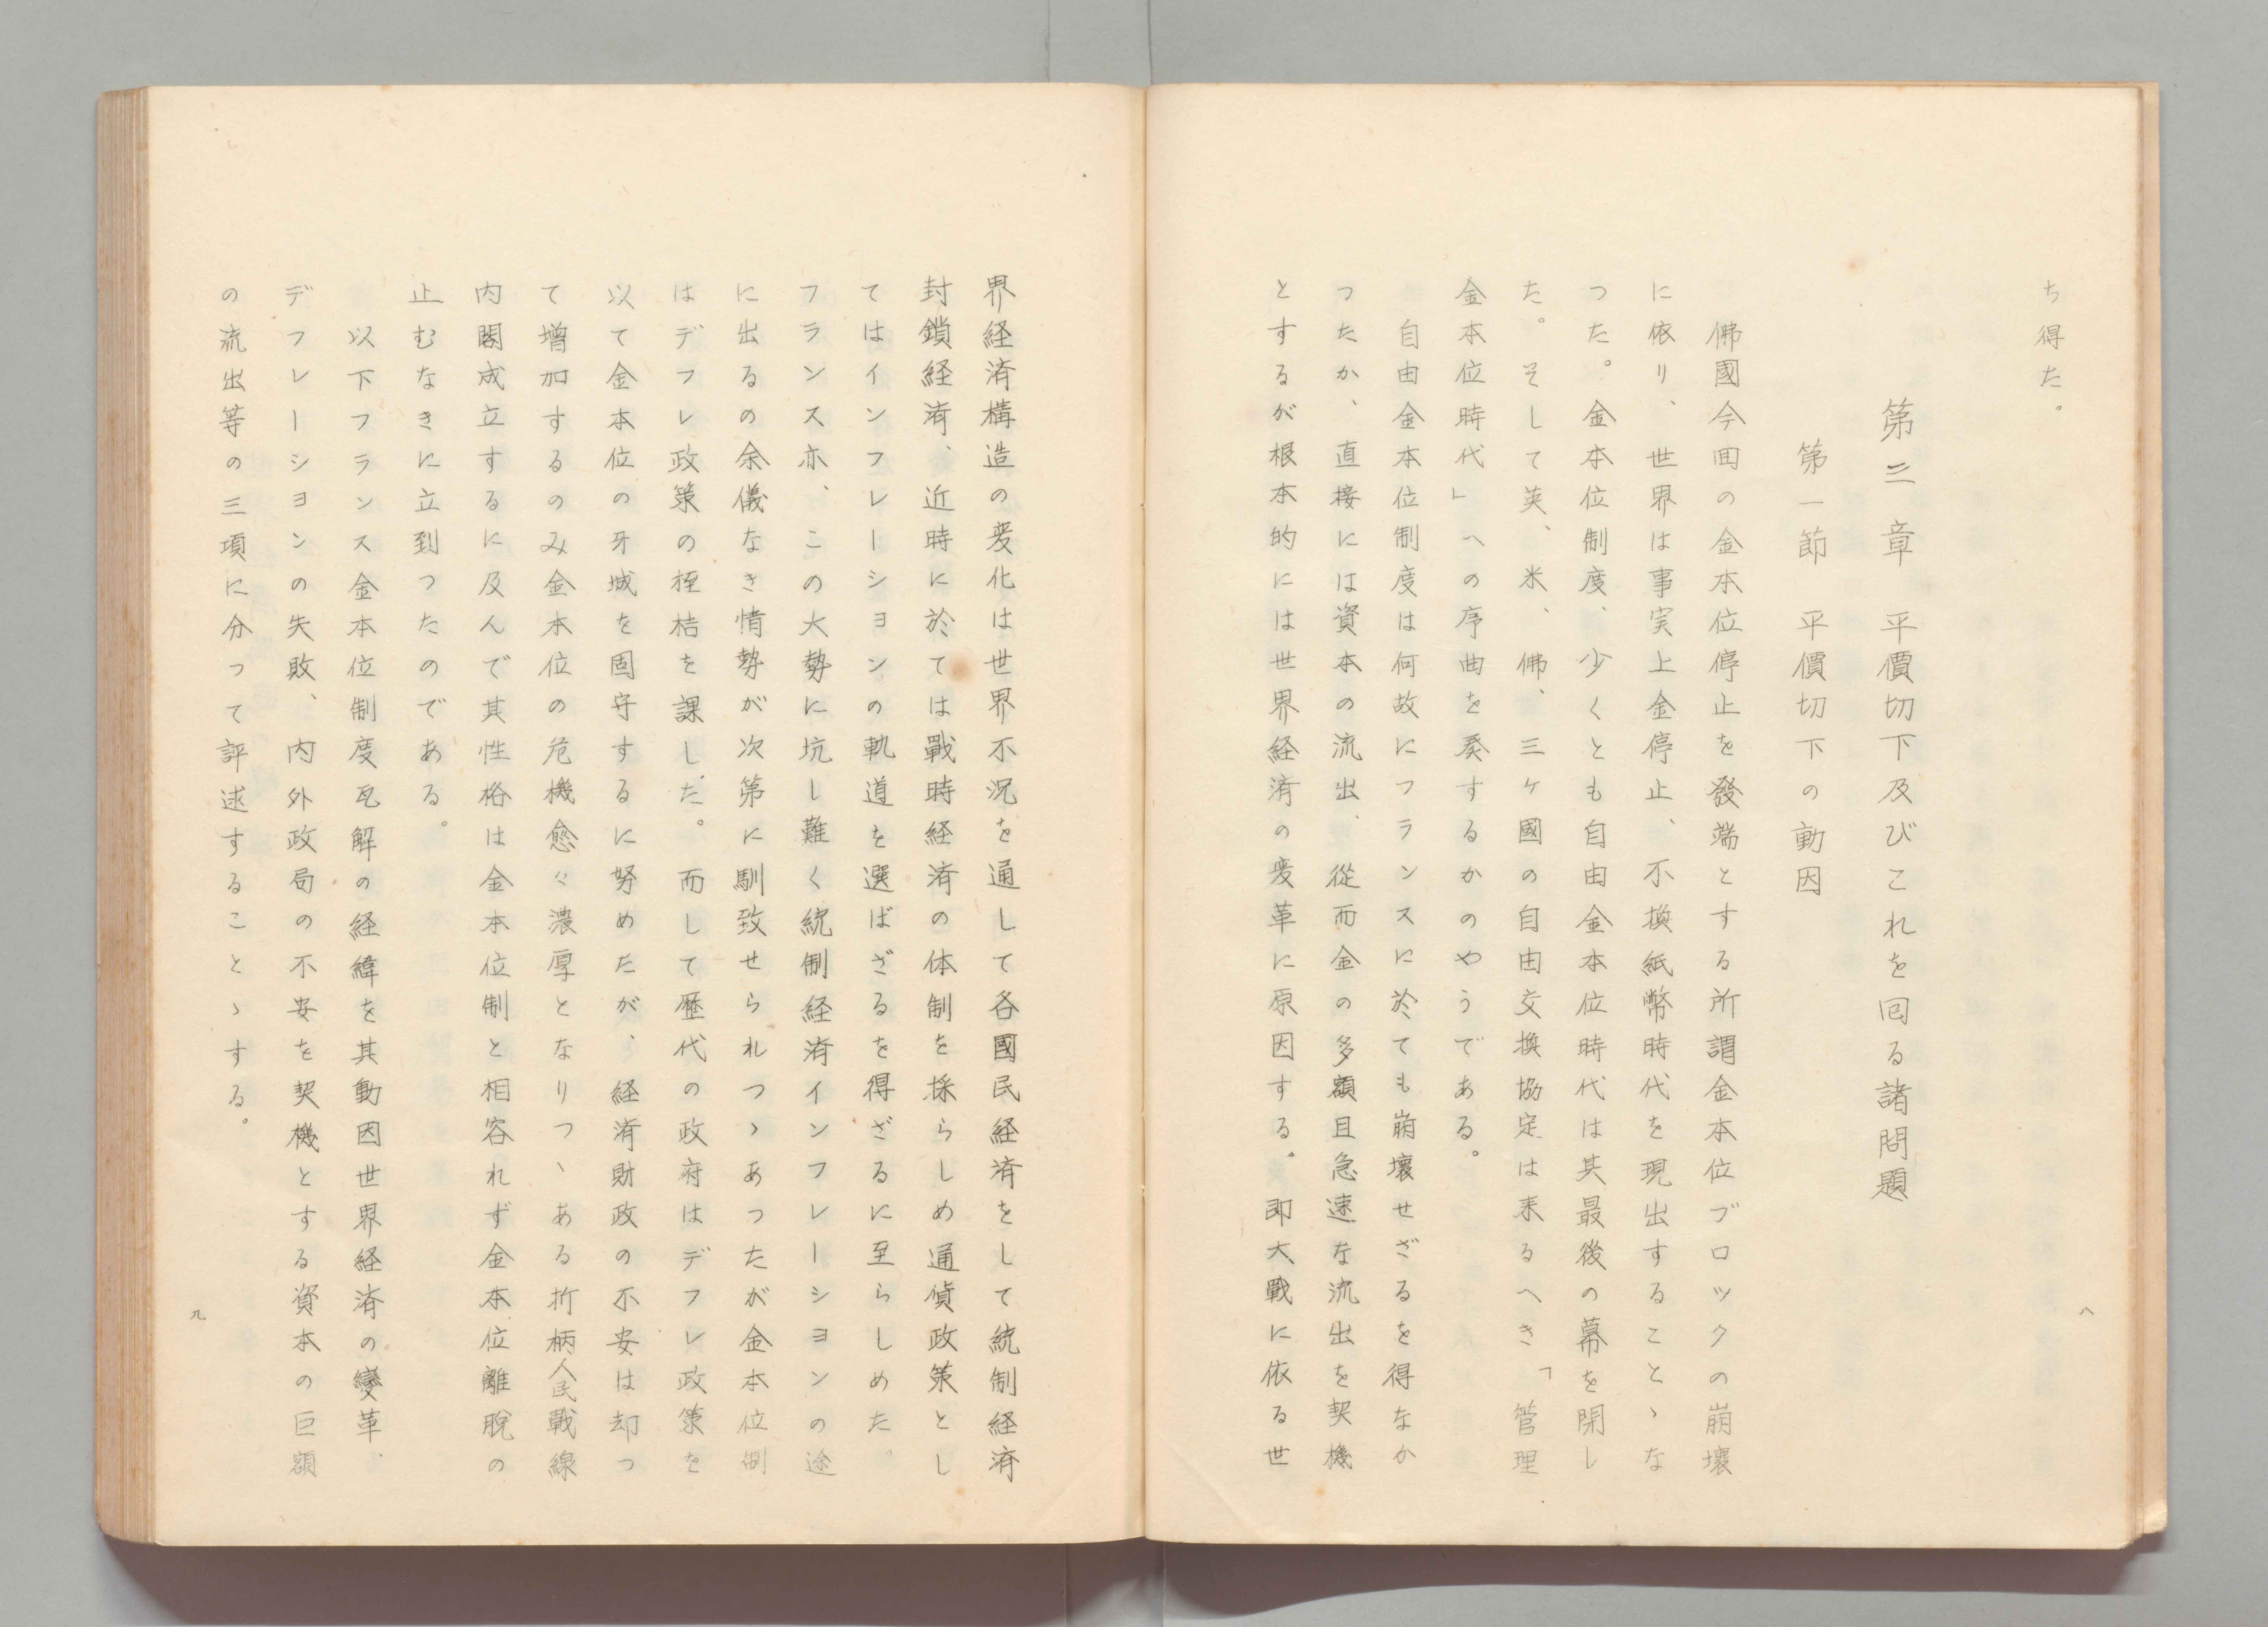 ち得た。
第三章　平價切下及びこれを回る諸問題
第一節　平價切下の動因
佛國今回の金本位停止を發端とする所謂金本位ブロックの崩壞
に依り、世界は事実上金停止、不換紙幣時代を現出することゝな
つた。金本位制度、少くとも自由金本位時代は其最後の幕を閉し
た。そして英、米、佛、三ヶ國の自由交換協定は来るへき「管理
金本位時代」への序曲を奏するかのやうである。
自由金本位制度は何故にフランスに於ても崩壞せざるを得なか
つたか、直接には資本の流出、從而金の多額且急速な流出を契機
とするが根本的には世界経済の変革に原因する。即大戰に依る世
八
界経済構造の変化は世界不況を通して各國民経済をして統制経済
封鎖経済、近時に於ては戰時経済の体制を採らしめ通貨政策とし
てはインフレーションの軌道を選ばざるを得ざるに至らしめた。
フランス亦、この大勢に坑し難く統制経済インフレーションの途
に出るの余儀なき情勢が次第に馴致せられつゝあつたが金本位制
はデフレ政策の桎桔を課した。而して歴代の政府はデフレ政策を
以て金本位の牙城を固守するに努めたが、経済財政の不安は却つ
て増加するのみ金本位の危機愈々濃厚となりつゝある折柄人民戰線
内閣成立するに及んで其性格は金本位制と相容れず金本位離脱の
止むなきに立到つたのである。
以下フランス金本位制度瓦解の経緯を其動因世界経済の變革、
デフレーションの失敗、内外政局の不安を契機とする資本の巨額
の流出等の三項に分つて評述することゝする。
九